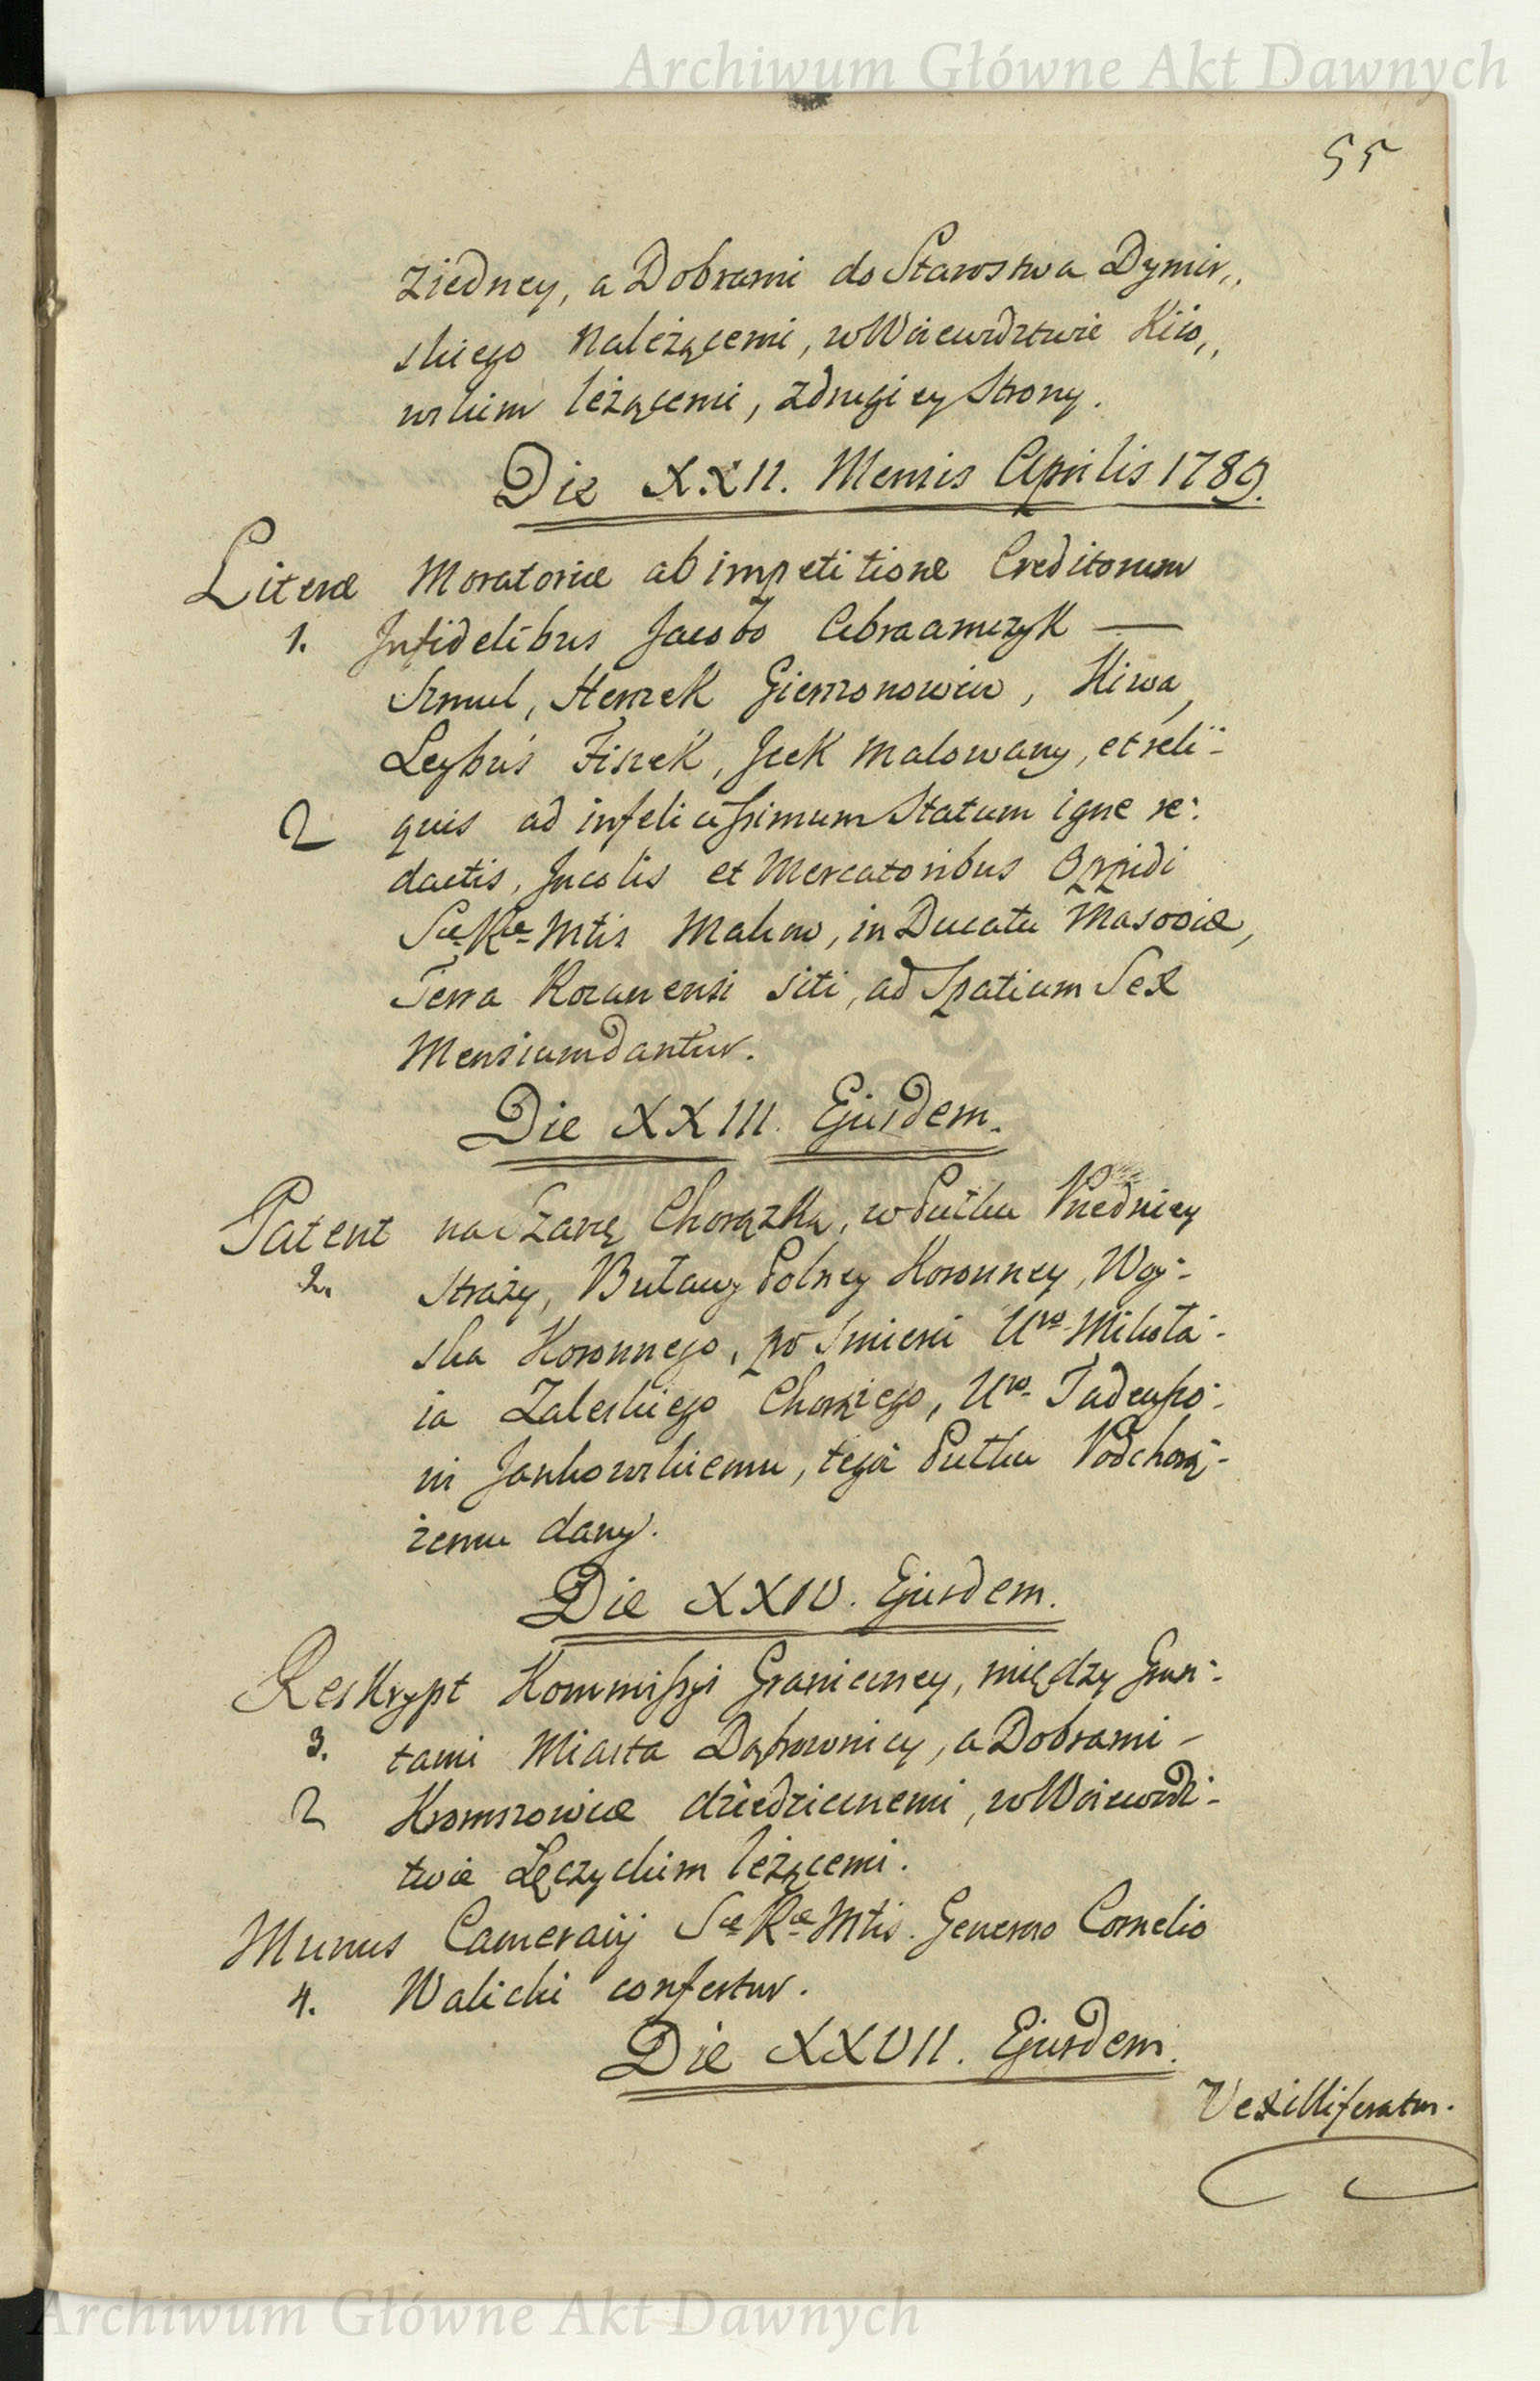 Archiwum Główne Akt Dawnych
55
ziedney, a Dobrami do Starostwa Dymir,,
skiego należącemi, w Woiewodztwie Kiio,,
wskim leżącemi, z drugiey Strony.
Die XXII. Mensis Aprilis 1789.
Literæ Moratoriæ ab impetitione Creditorum
1. Infidelibus Jacobo Abraamczyk —
Szmul, Herszek Gierszonowicz, Kiwa,
Leybuś Fiszek, Icek Malowany, et reli-
2 quis ad infelicissimum Statum igne re-
dactis, Incolis et Mercatoribus Oppidi
Sæ Ræ Mtis Makow, in Ducatu Masoviæ,
Terra Rozanensi siti, ad Spatium Sex
Mensium dantur.
Die XXIII. Ejusdem.
Patent na Szarżę Chorążką, w Pułku Przedniey
2. Straży, Buławy Polney Koronney, Woy-
ska Koronnego, po Smierci Uro Mikoła-
ia Zaleskiego Chorążego, Uro Tadeuszo-
wi Jankowskiemu, tegoż Pułku Podchorą-
żemu dany.
Die XXIV. Ejusdem.
Reskrypt Kommissyi Graniczney, między Grun-
3. tami Miasta Dąbrownicy, a Dobrami -
2 dziedzicznemi, w Woiewodz-
twie Łęczyckim leżącemi.
Munus Camerarij Sæ Ræ Mtis. Generoso Cornelio
4. Walicki confertur.
Die XXVII. Ejusdem.
Vexilliferatus.
Archiwum Główne Akt Dawnych